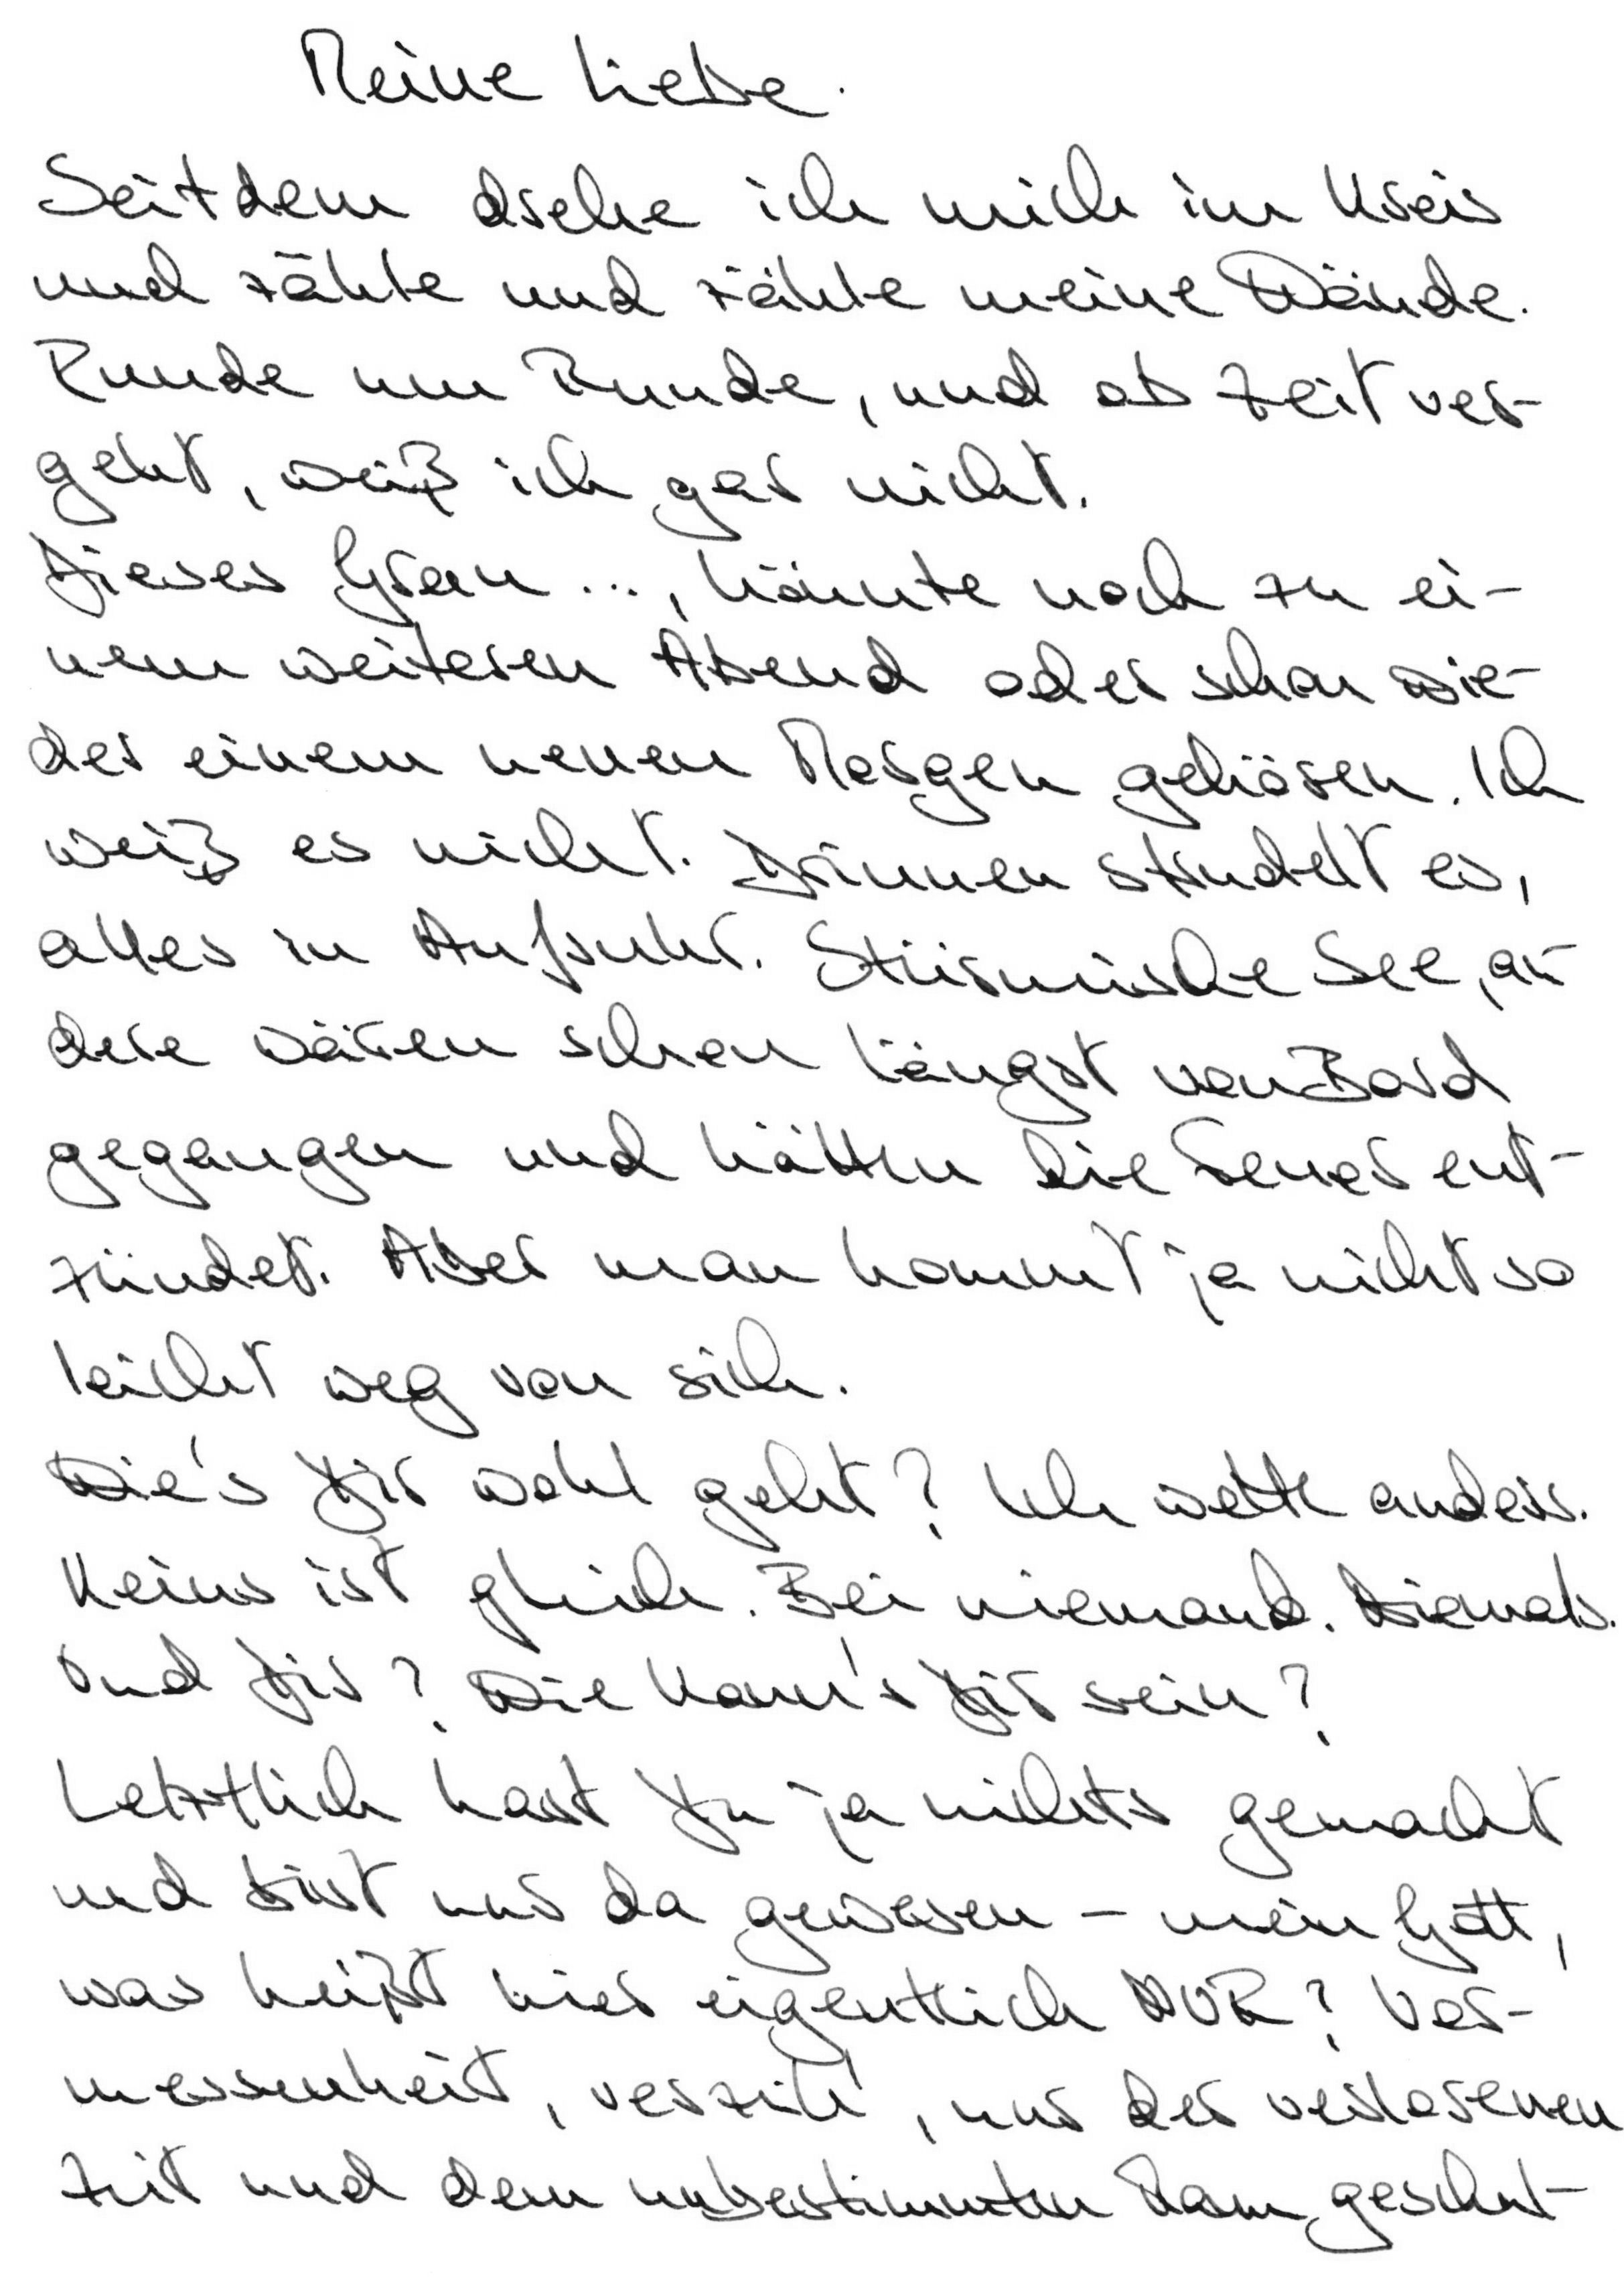 Meine Liebe.
Seitdem drehe ich mich im Kreis
und zähle und zähle meine Wände.
Runde um Runde, und ob Zeit ver-
geht, weiß ich gar nicht.
Dieses Grau ..., könnte noch zu ei-
nem weiteren Abend oder schon wie-
der einem neuen Morgen gehören. Ich
weiß es nicht. Drinnen strudelt es,
alles in Aufruhr. Stürmische See, an-
dere wären schon längst von Bord
gegangen und hätten die Feuer ent-
zündet. Aber man kommt ja nicht so
leicht weg von sich.
Wie's Dir wohl geht? Ich wette anders.
Keins ist gleich. Bei niemand. Niemals.
Und Dir? Wie kann's Dir sein?
Letztlich hast Du ja nichts gemacht
und bist nur da gewesen – mein Gott,
was heißt hier eigentlich NUR? Ver-
messenheit, verzeih', nur der verlorenen
Zeit und dem unbestimmten Raum geschul-